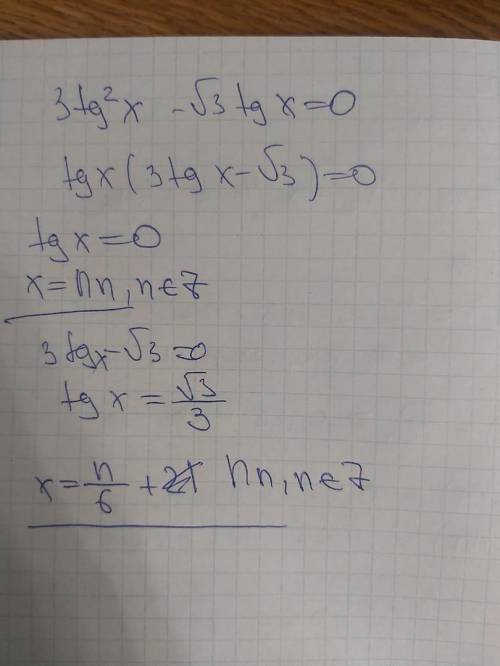 3tg²x - √3 tg x = 0
tg x (3tg x - √3) = 0
tg x = 0
x = πn, n ∈ Z
3tgx - √3 = 0
tg x = √3/3
x = π/6 + πn, n ∈ Z